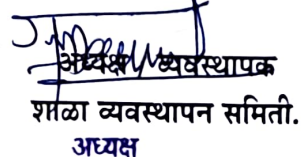 अध्यक्ष व्यवस्थापक
शाळा व्यवस्थापन समिती.
अध्यक्ष